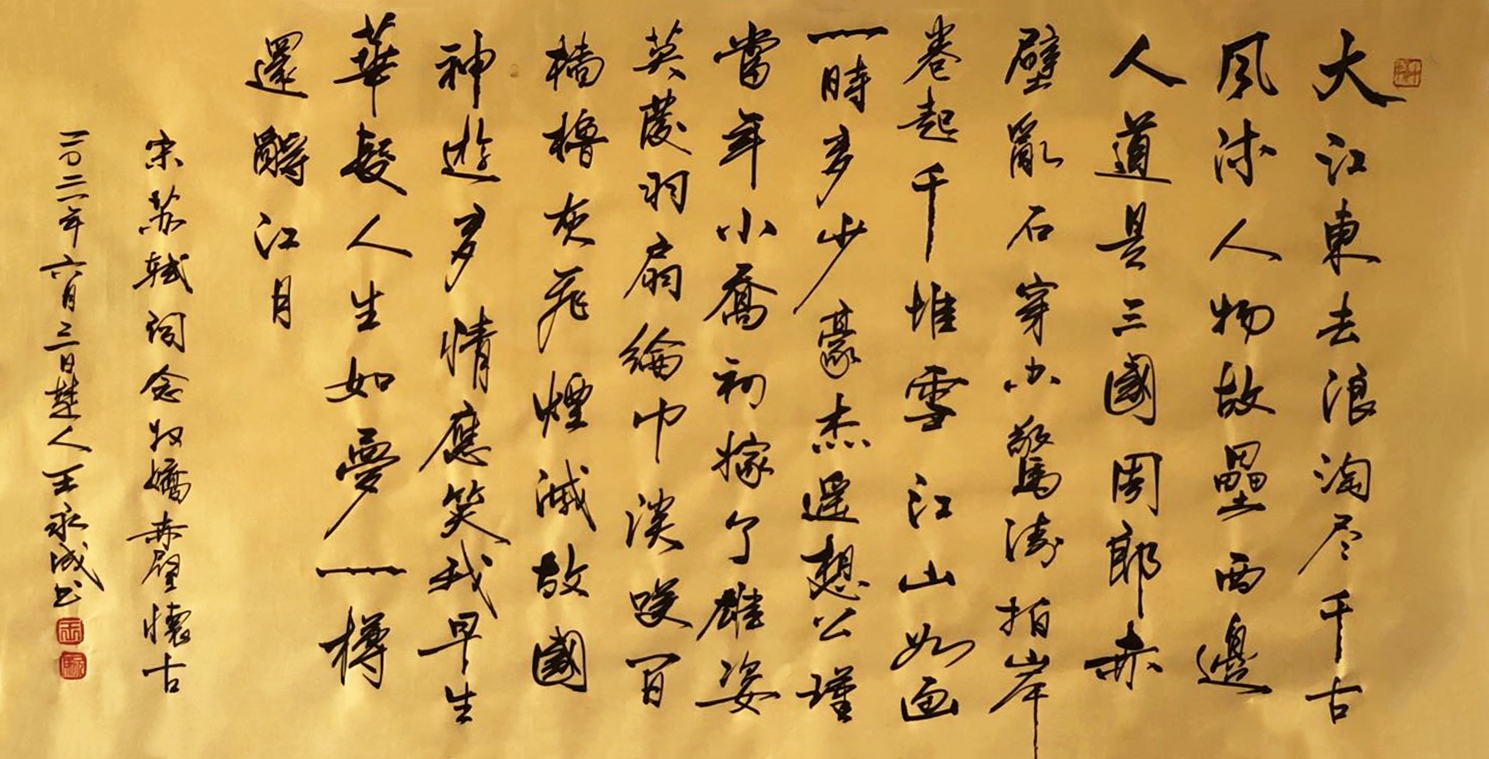 大江東去浪淘尽千古
风流人物故壘西邊
人道是三國周郎赤
壁亂石穿空驚濤拍岸
卷起千堆雪江山如画
一時多少豪杰遥想公瑾
當年小喬初嫁了雄姿
英發羽扇綸巾談笑間
檣櫓灰飛煙滅故國
神遊多情應笑我早生
華髮人生如夢一樽
還酹江月
宋苏軾詞念奴嬌赤壁懷古
二〇二二年六月三日楚人王永成书